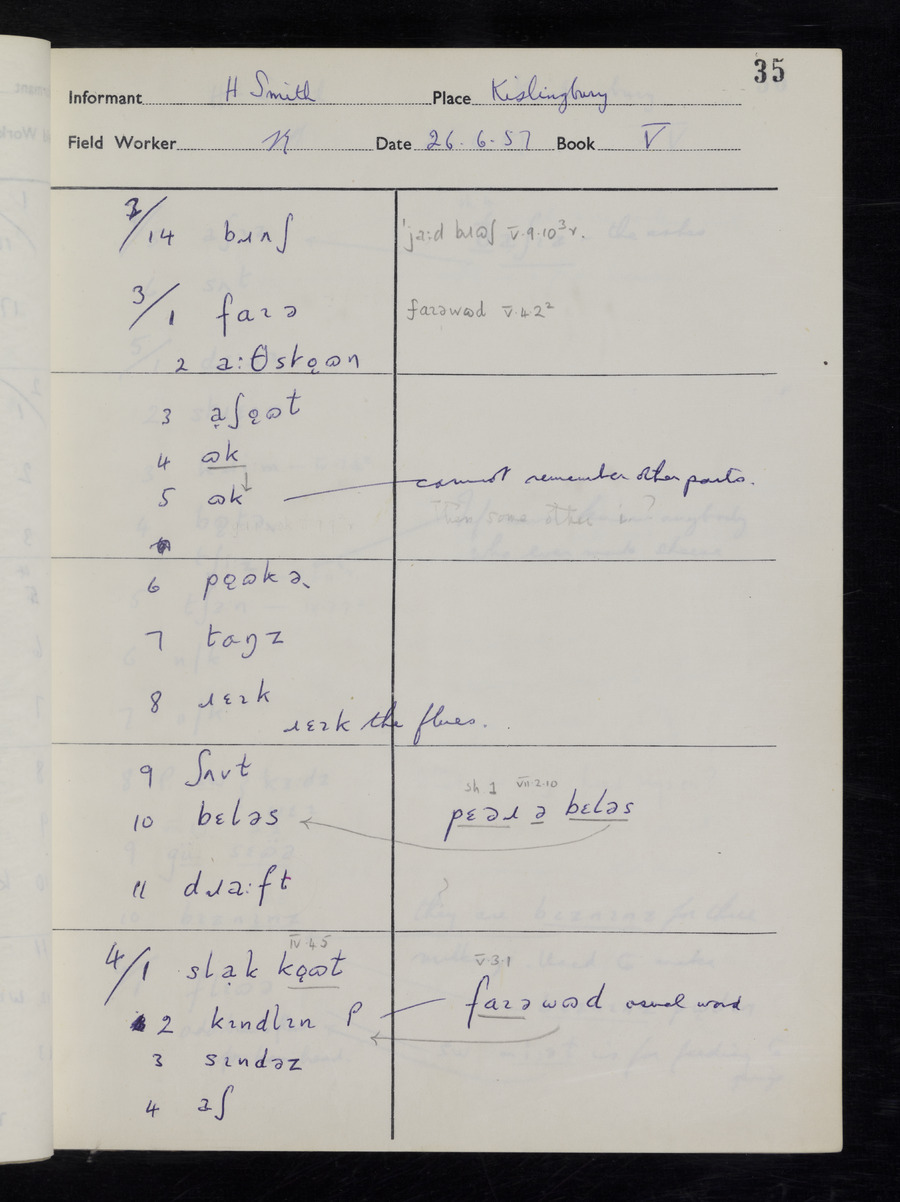 35
Informant H Smith Place Kislingbury
Field Worker Date 26.6.57 Book V
2/14 bɹʌʃ 'ja:d bɹɷʃ V.9.10³r.
3/1 faɪə faɪəwɷd V.4.2²
2 a:θstǫɷn
3 aʃǫɷt
4 ɷk
5 ɷk cannot remember other parts.
6 pǫɷkə
7 taŋz
8 ɹɛɪk
ɹɛɪk the flues.
9 ʃʌvt
sh 1 VII.2.10
10 bɛləs pɛəɹ ə bɛləs
11 dɹa:ft
IV.4.5 V.3.1
4/1 slak kǫɷt
2 kɪndlɪn P faɪəwɷd usual word
3 sɪndəz
4 aʃ